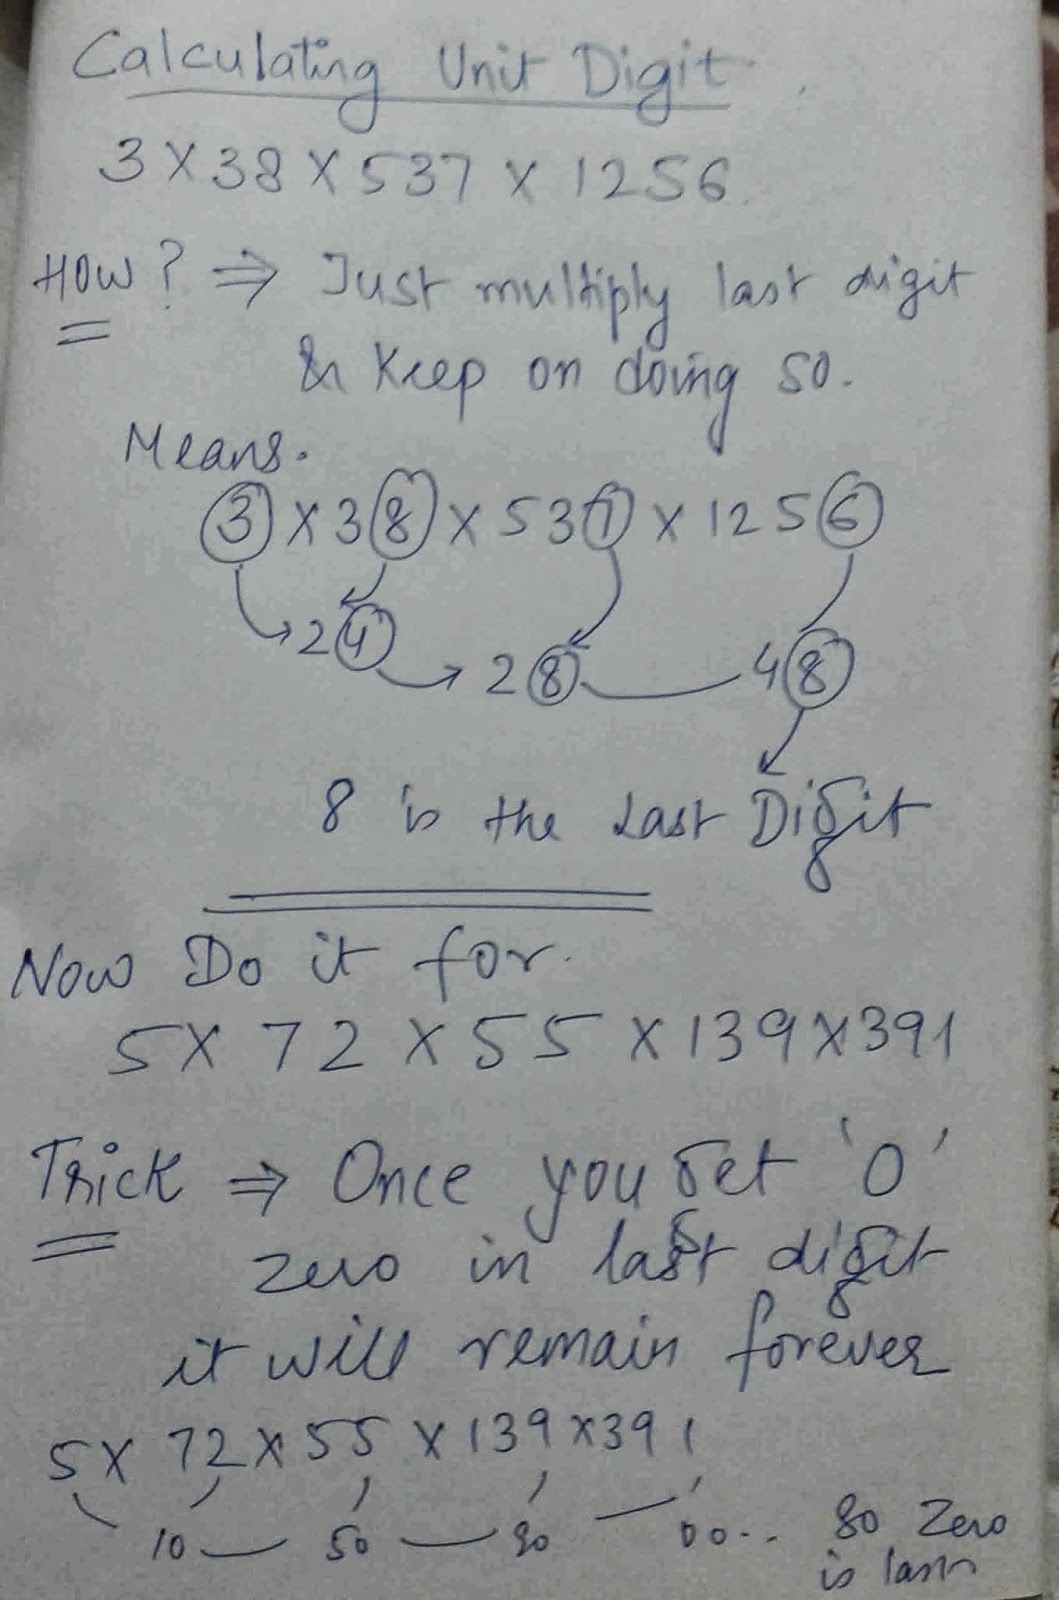 Calculating Unit Digit
3 X 38 X 537 X 1256.
How? ⇒ Just multiply last digit
& Keep on doing so.
Means.
3 X 38 X 537 X 1256
24
28 48
8 is the Last Digit
Now Do it for.
5 X 72 X 55 X 139 X 391
Trick ⇒ Once you get '0'
zero in last digit
it will remain forever
5 X 72 X 55 X 139 X 391
10 50 00.. So Zero
is last